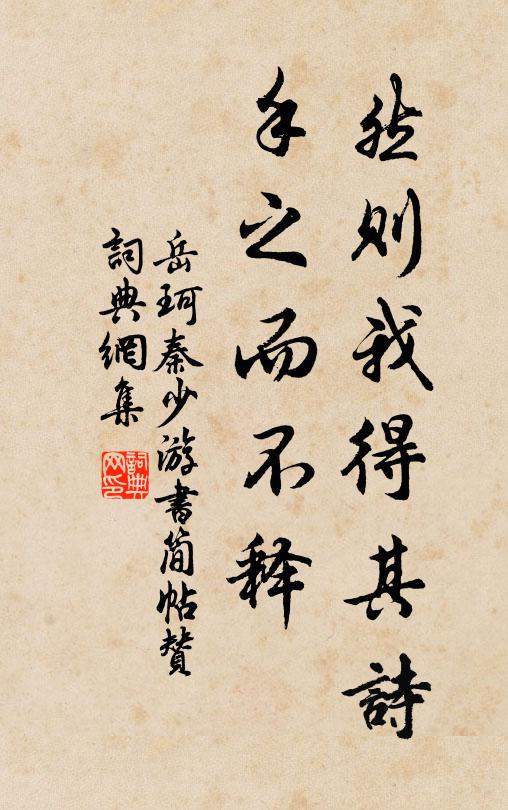 然则我得其詩
手之而不释
岳珂秦少游書简帖賛
詞典網集
詞典网印